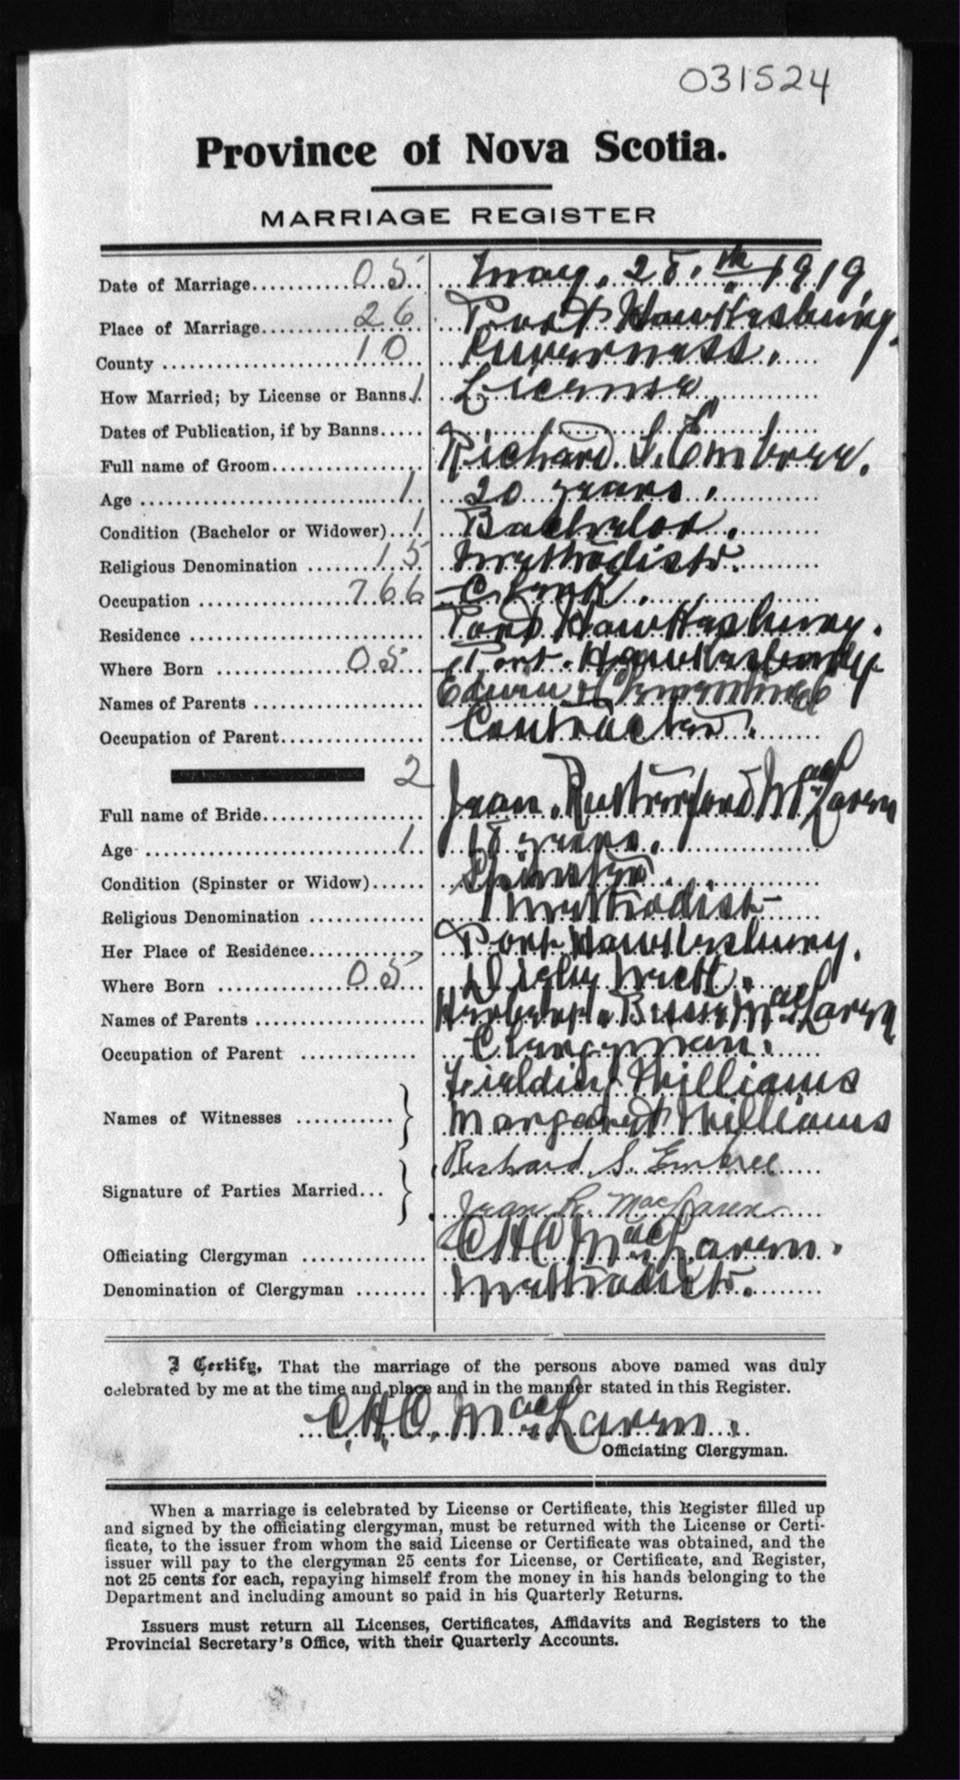 031524
Province of Nova Scotia.
MARRIAGE REGISTER
Date of Marriage 05 May, 28.th 1919.
Place of Marriage 26 Port Hawkesbury.
County 10 Inverness.
How Married; by License or Banns 1 License.
Dates of Publication, if by Banns
Full name of Groom Richard S. Embree.
Age 1 20 years.
Condition (Bachelor or Widower) 1 Bachelor.
Religious Denomination 15 Methodist.
Occupation 766 Clerk.
Residence Port Hawkesbury.
Where Born 05 Port Hawkesbury
Names of Parents Edwin
Occupation of Parent Contractor.
2
Full name of Bride Jean Rutherford MacLaren
Age 1 18 years.
Condition (Spinster or Widow) Spinster.
Religious Denomination Methodist
Her Place of Residence Port Hawkesbury.
Where Born 05 Digby Neck.
Names of Parents Bessie MacLaren
Occupation of Parent Clergyman.
Fielding Williams
Names of Witnesses Margaret Williams
Richard S. Embree
Signature of Parties Married Jean R. MacLaren
Officiating Clergyman C.H.C. MacLaren.
Denomination of Clergyman Methodist.
I Certify, That the marriage of the persons above named was duly
celebrated by me at the time and place and in the manner stated in this Register.
C.H.C. MacLaren.
Officiating Clergyman.
When a marriage is celebrated by License or Certificate, this Register filled up
and signed by the officiating clergyman, must be returned with the License or Certi-
ficate, to the issuer from whom the said License or Certificate was obtained, and the
issuer will pay to the clergyman 25 cents for License, or Certificate, and Register,
not 25 cents for each, repaying himself from the money in his hands belonging to the
Department and including amount so paid in his Quarterly Returns.
Issuers must return all Licenses, Certificates, Affidavits and Registers to the
Provincial Secretary's Office, with their Quarterly Accounts.